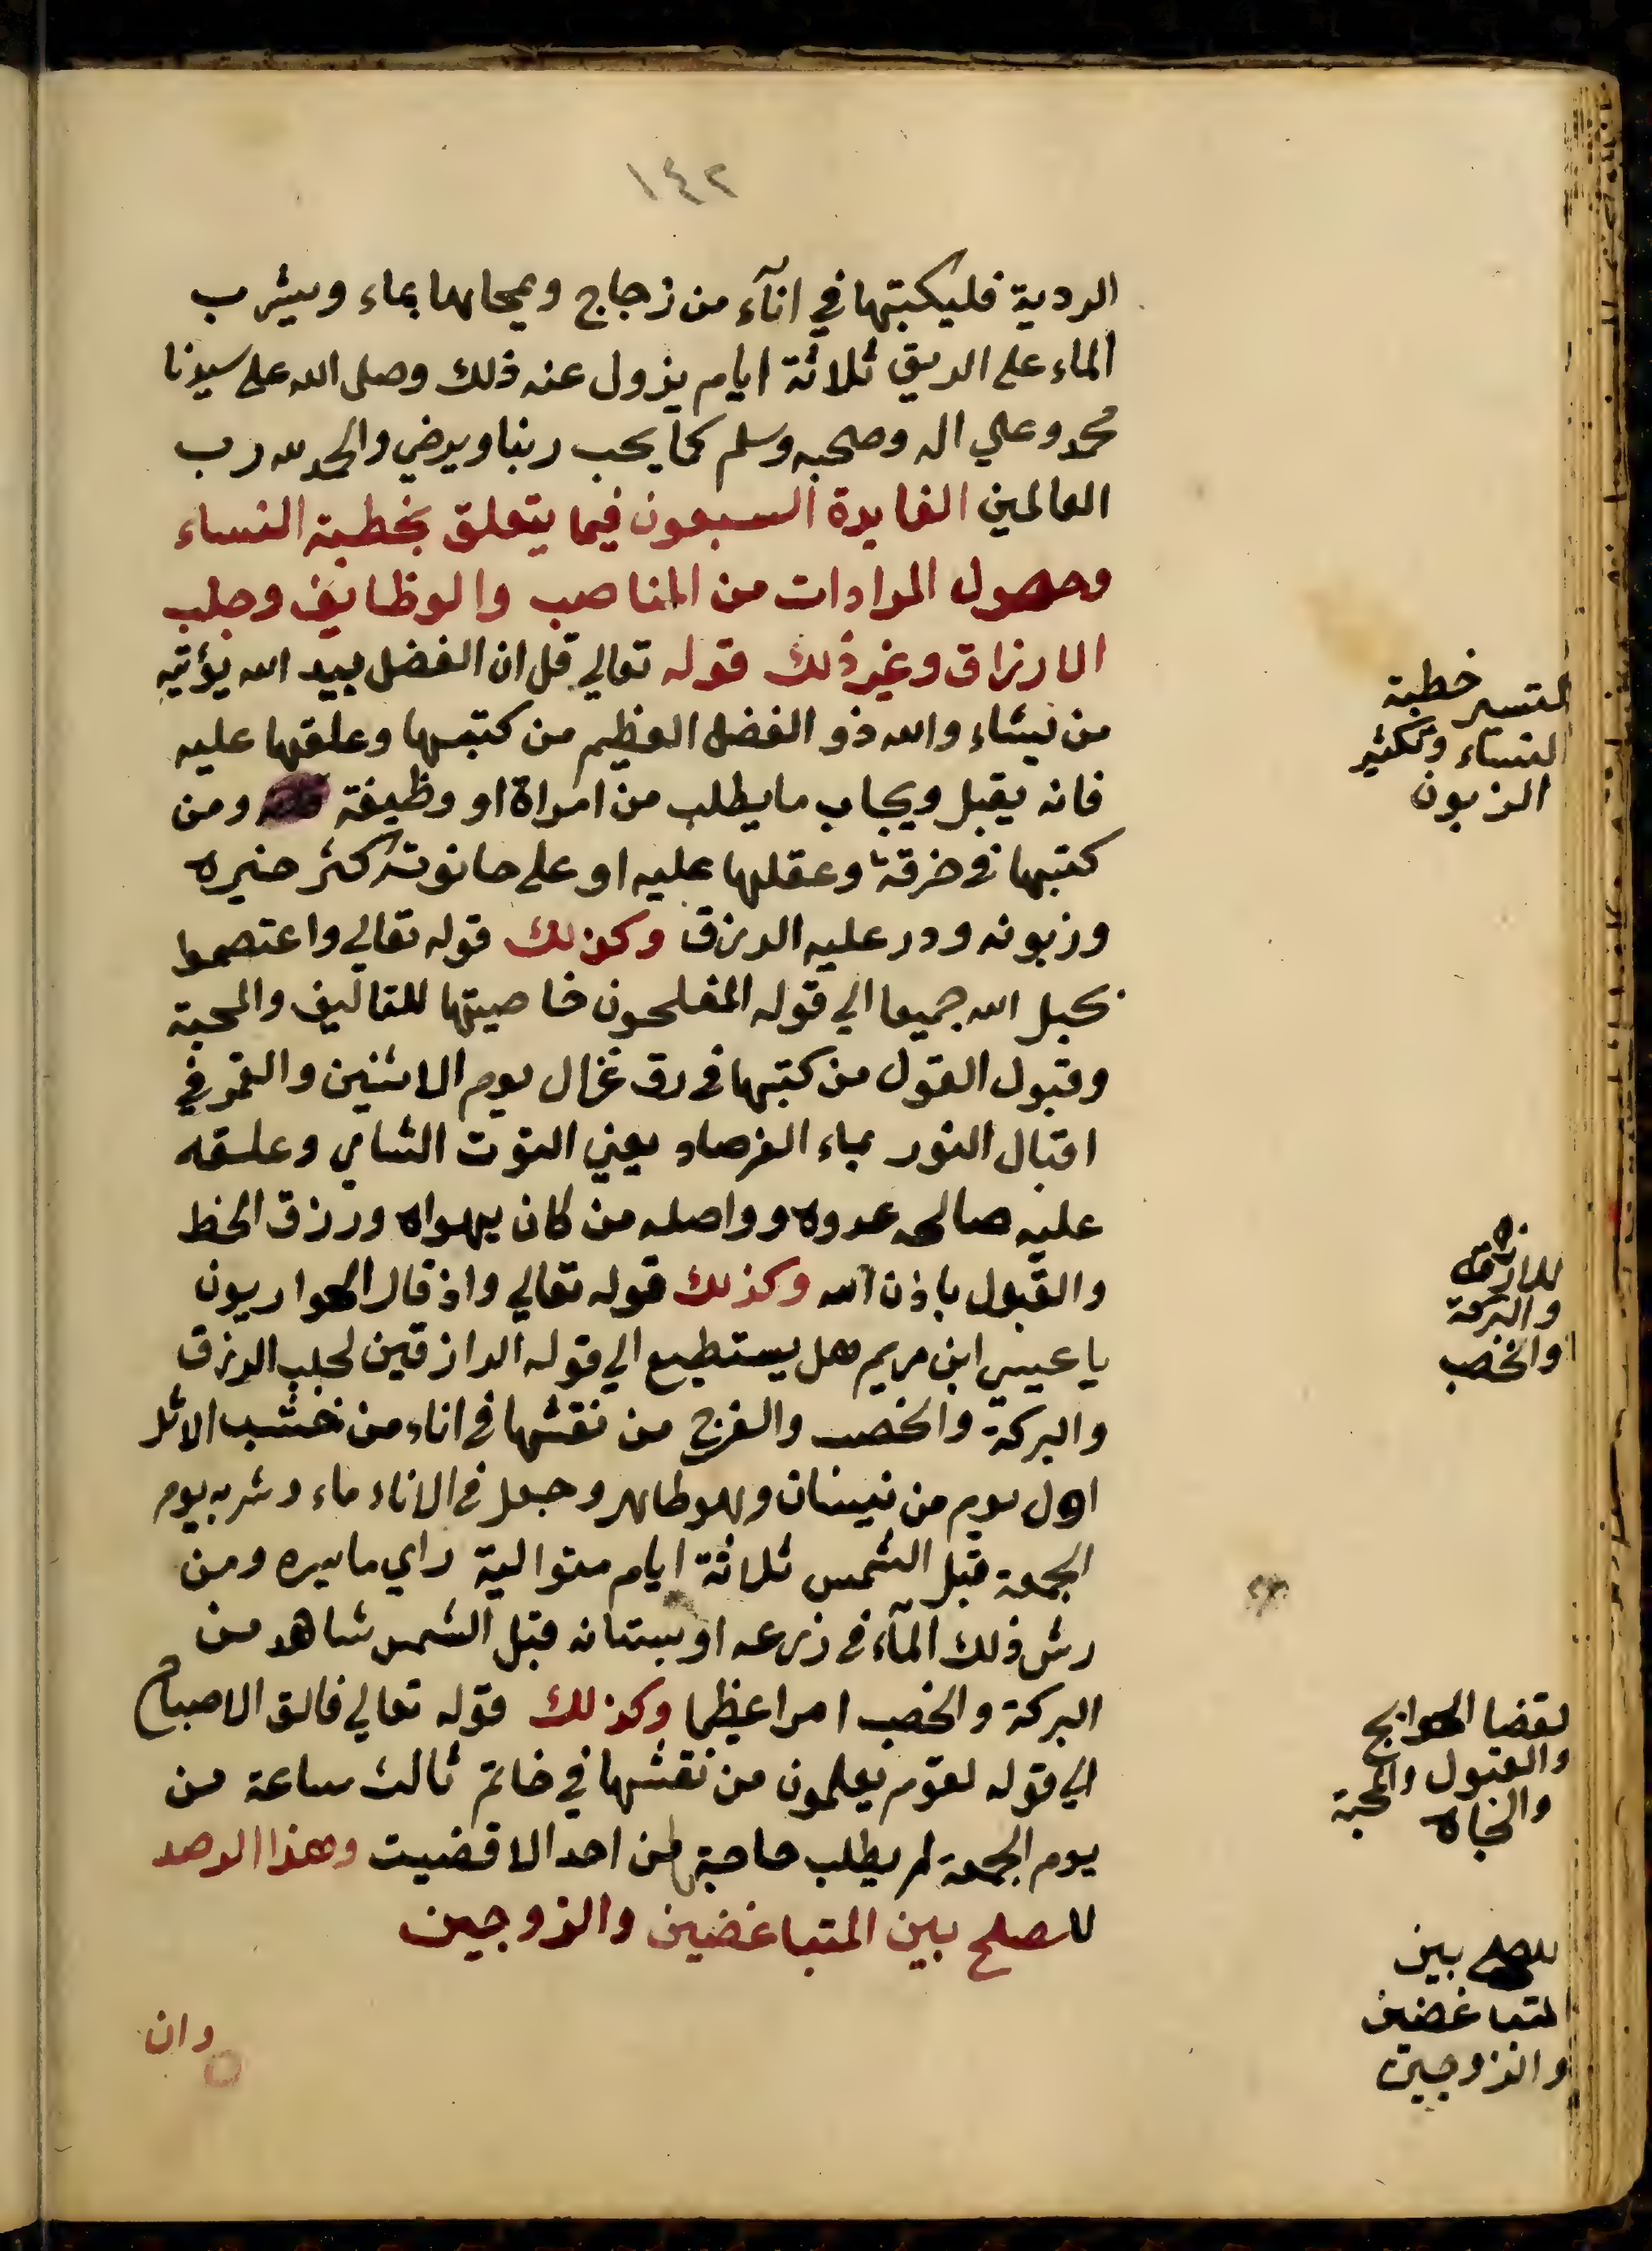 ١٤٢
الردية فليكبتها في انآء من زجاج ويمحاها بماء ويشرب
الماء على الريق ثلاثة ايام يزول عنه ذلك وصلى الله على سيدنا
محمد وعلي اله وصحبه وسلم كما يحب ربنا ويرضي والحمد لله رب
العالمين الفايدة السبعون فيما يتعلق بخطبة النساء
وحصول المرادات من المناصب والوظايف وجلب
الارزاق وغير ذلك قوله تعالي قل ان الفضل بيد الله يؤتيه
من يشاء والله ذو الفضل العظيم من كتبها وعلقها عليه
فانه يقبل ويجاب ما يطلب من امراة او وظيفة ومن
كتبها في خرقة وعقلها عليه او على حانوته كثر خيره
وزبونه ودر عليه الرزق وكذلك قوله تعالي واعتصموا
بحبل الله جميعا الي قوله المفلحون خاصيتها للتاليف والمحبة
وقبول القول من كتبها في رق غزال يوم الاثنين والقمر في
اقبال النور بماء الفرصاد يعني التوت الشامي وعلقه
عليه صالحه عدوه وواصله من كان يهواه ورزق الحظ
والقبول باذن الله وكذلك قوله تعالي واذ قال الحواريون
يا عيسي ابن مريم هل يستطيع الي قوله الرازقين لجلب الرزق
والبركة والخصب والفرج من نقشها في اناء من خشب الاثل
اول يوم من نيسان وهو طاهر وجعل في الاناء ماء وشربه يوم
الجمعة قبل الشمس ثلاثة ايام متوالية راي ما يسره ومن
رش ذلك المآء في زرعه او بستانه قبل الشمس شاهد من
البركة والخصب امرا عظيما وكذلك قوله تعالي فالق الاصباح
الي قوله لقوم يعلمون من نقشها في خاتم ثالث ساعة من
يوم الجمعة لم يطلب حاجة من احد الا قضيت وهذا الرصد
للصلح بين المتباغضين والزوجين
وان
لتسير خطبة
النساء وتكثير
الزبون
للارزاق
والبركة
والخصب
لقضا الحوايج
والقبول والمحبة
والجاه
للصلح بين
المتباغضين
والزوجين